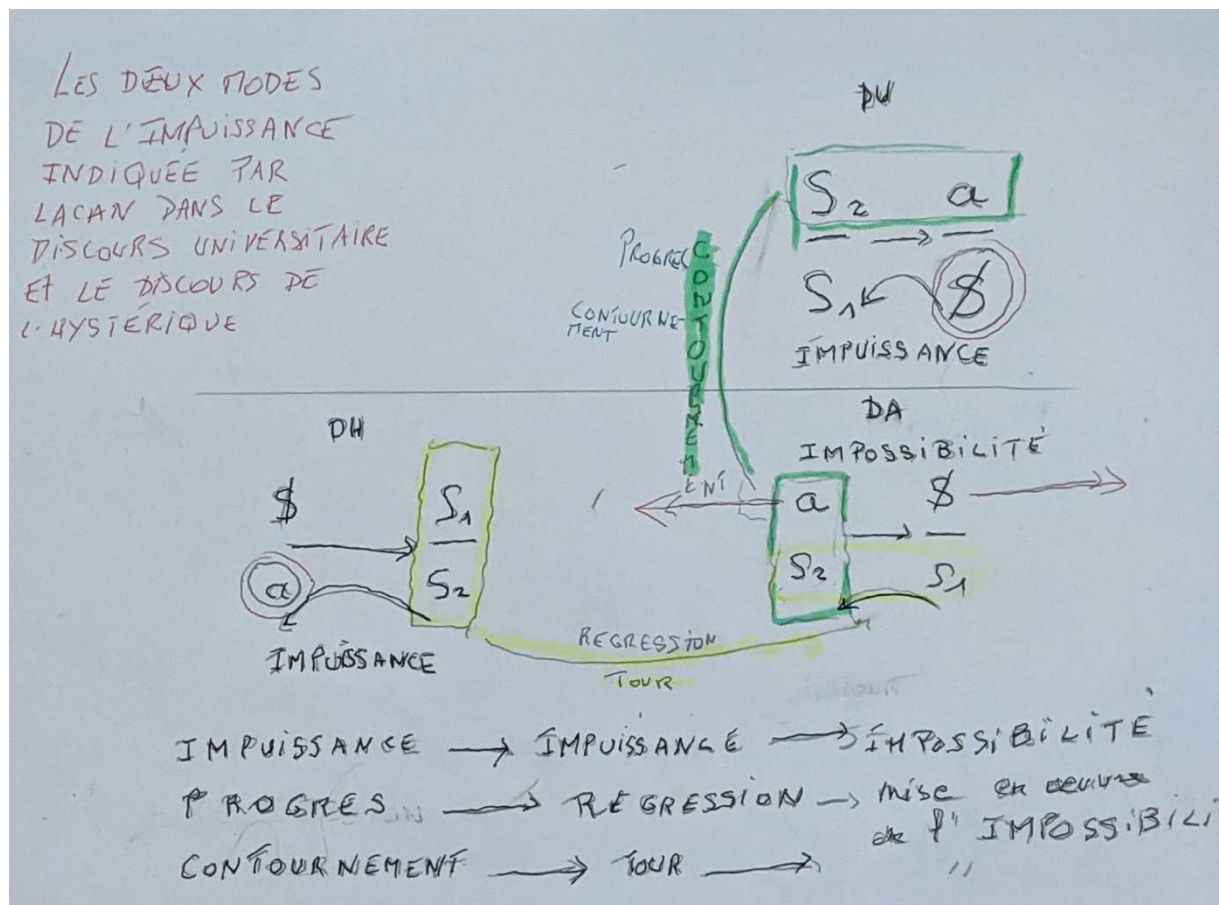 LES DEUX MODES
DE L'IMPUISSANCE
INDIQUÉE PAR
LACAN DANS LE
DISCOURS UNIVERSITAIRE
ET LE DISCOURS DE
L'HYSTÉRIQUE
DU
S2 a
S1 $
IMPUISSANCE
PROGRES
CONTOURNE-
MENT
CONTOURNEMENT
DH
$ S1
a S2
IMPUISSANCE
DA
IMPOSSIBILITÉ
a $
S2 S1
REGRESSION
TOUR
IMPUISSANCE → IMPUISSANCE → IMPOSSIBILITÉ
PROGRES → REGRESSION → mise en oeuvre
de l'IMPOSSIBILI
CONTOURNEMENT → TOUR → "